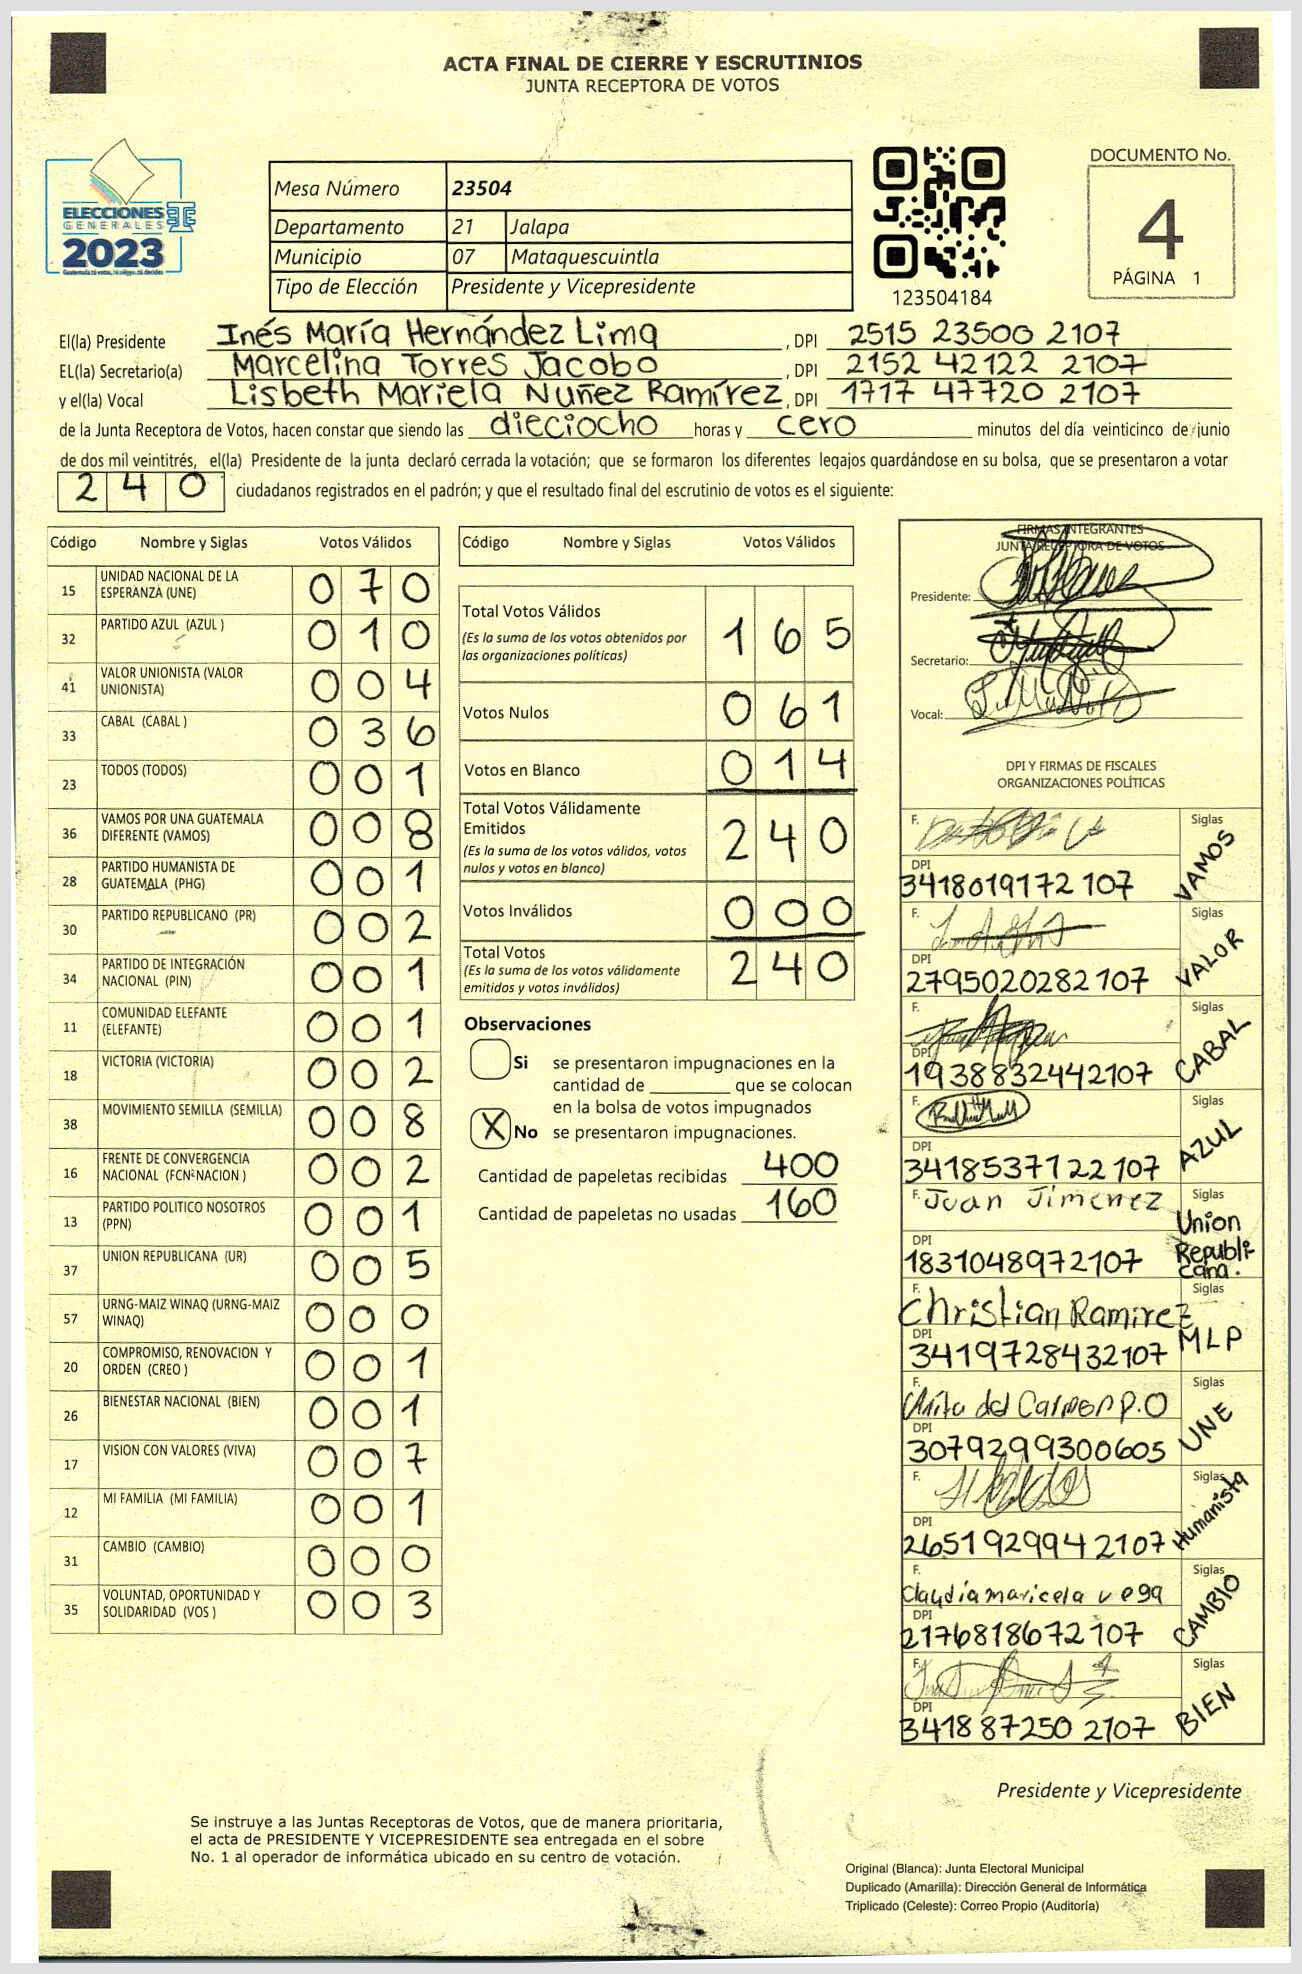 ACTA FINAL DE CIERRE Y ESCRUTINIOS
JUNTA RECEPTORA DE VOTOS
ELECCIONES
GENERALES
2023
Guatemala tú votas, tú eliges, tú decides
Mesa Número 23504
Departamento 21 Jalapa
Municipio 07 Mataquescuintla
Tipo de Elección Presidente y Vicepresidente
123504184
DOCUMENTO No.
4
PÁGINA 1
El(la) Presidente Inés María Hernández Lima, DPI 2515 23500 2107
EL(la) Secretario(a) Marcelina Torres Jacobo, DPI 2152 42122 2107
y el(la) Vocal Lisbeth Mariela Nuñez Ramírez, DPI 1717 47720 2107
de la Junta Receptora de Votos, hacen constar que siendo las dieciocho horas y cero minutos del día veinticinco de junio
de dos mil veintitrés, el(la) Presidente de la junta declaró cerrada la votación; que se formaron los diferentes legajos guardándose en su bolsa, que se presentaron a votar
240 ciudadanos registrados en el padrón; y que el resultado final del escrutinio de votos es el siguiente:
Código Nombre y Siglas Votos Válidos
15 UNIDAD NACIONAL DE LA ESPERANZA (UNE) 070
32 PARTIDO AZUL (AZUL ) 010
41 VALOR UNIONISTA (VALOR UNIONISTA) 004
33 CABAL (CABAL ) 036
23 TODOS (TODOS) 001
36 VAMOS POR UNA GUATEMALA DIFERENTE (VAMOS) 008
28 PARTIDO HUMANISTA DE GUATEMALA (PHG) 001
30 PARTIDO REPUBLICANO (PR) 002
34 PARTIDO DE INTEGRACIÓN NACIONAL (PIN) 001
11 COMUNIDAD ELEFANTE (ELEFANTE) 001
18 VICTORIA (VICTORIA) 002
38 MOVIMIENTO SEMILLA (SEMILLA) 008
16 FRENTE DE CONVERGENCIA NACIONAL (FCN-NACION ) 002
13 PARTIDO POLITICO NOSOTROS (PPN) 001
37 UNION REPUBLICANA (UR) 005
57 URNG-MAIZ WINAQ (URNG-MAIZ WINAQ) 000
20 COMPROMISO, RENOVACION Y ORDEN (CREO ) 001
26 BIENESTAR NACIONAL (BIEN) 001
17 VISION CON VALORES (VIVA) 007
12 MI FAMILIA (MI FAMILIA) 001
31 CAMBIO (CAMBIO) 000
35 VOLUNTAD, OPORTUNIDAD Y SOLIDARIDAD (VOS ) 003
Código Nombre y Siglas Votos Válidos
Total Votos Válidos 165
(Es la suma de los votos obtenidos por
las organizaciones políticas)
Votos Nulos 061
Votos en Blanco 014
Total Votos Válidamente
Emitidos 240
(Es la suma de los votos válidos, votos
nulos y votos en blanco)
Votos Inválidos 000
Total Votos 240
(Es la suma de los votos válidamente
emitidos y votos inválidos)
Observaciones
Si se presentaron impugnaciones en la
cantidad de ________ que se colocan
en la bolsa de votos impugnados
X No se presentaron impugnaciones.
Cantidad de papeletas recibidas 400
Cantidad de papeletas no usadas 160
FIRMAS INTEGRANTES
JUNTA RECEPTORA DE VOTOS
Presidente:
Secretario:
Vocal:
DPI Y FIRMAS DE FISCALES
ORGANIZACIONES POLÍTICAS
F. Siglas VAMOS
DPI 3418019172107
F. Siglas VALOR
DPI 2795020282107
F. Siglas CABAL
DPI 1938832442107
F. Siglas AZUL
DPI 3418537122107
F. Juan Jimenez Siglas Union Republicana.
DPI 1831048972107
F. Christian Ramirez Siglas MLP
DPI 3419728432107
F. Anita del Carmen P.O Siglas UNE
DPI 3079299300605
F. Siglas Humanista
DPI 2651929942107
F. Claudia maricela vega Siglas CAMBIO
DPI 2176818672107
F. Siglas BIEN
DPI 3418872502107
Presidente y Vicepresidente
Se instruye a las Juntas Receptoras de Votos, que de manera prioritaria,
el acta de PRESIDENTE Y VICEPRESIDENTE sea entregada en el sobre
No. 1 al operador de informática ubicado en su centro de votación.
Original (Blanca): Junta Electoral Municipal
Duplicado (Amarilla): Dirección General de Informática
Triplicado (Celeste): Correo Propio (Auditoría)